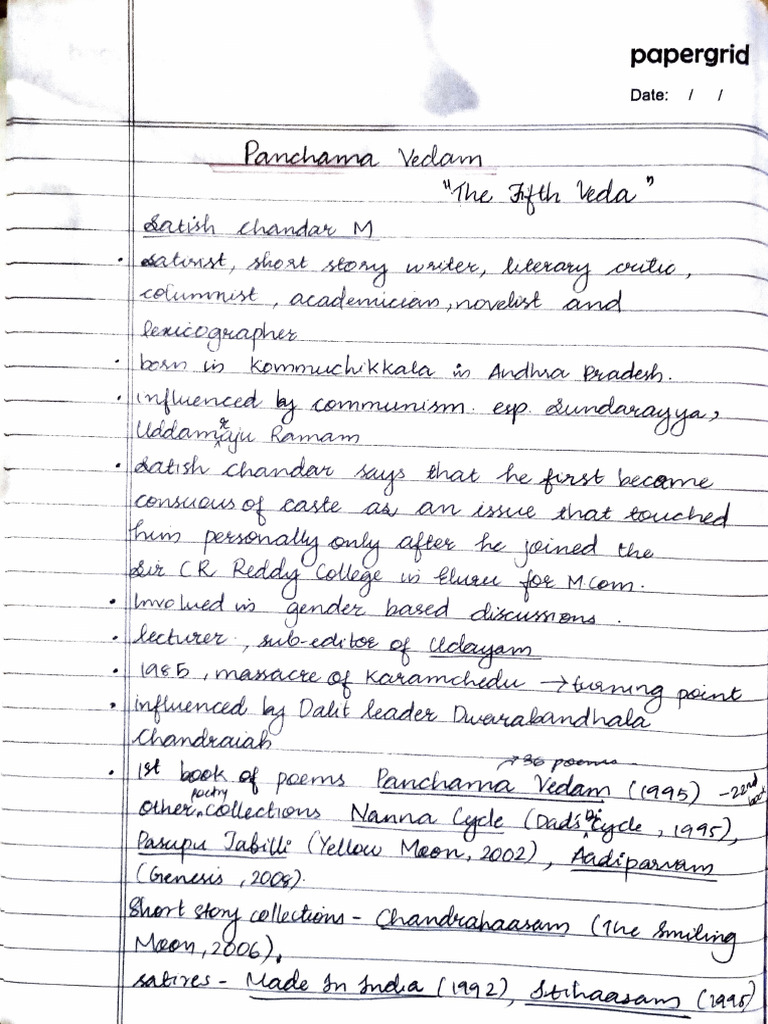 papergrid
Date: / /
Panchama Vedam
"The Fifth Veda"
Satish Chandar M
• Satirist, short story writer, literary critic,
columnist, academician, novelist and
lexicographer
• born in Kommuchikkala in Andhra Pradesh.
• influenced by communism. esp. Sundarayya,
Uddamraju Ramam
• Satish Chandar says that he first become
consuous of caste as an issue that touched
him personally only after he joined the
Sir CR Reddy College in Eluru for MCom.
• Involved in gender based discussions.
• lecturer, sub-editor of Udayam
• 1985, massacre of Karamchedu → turning point
• influenced by Dalit leader Dwarabandhala
Chandraiah
→ 36 poems
• 1st book of poems Panchama Vedam (1995) - 22nd
other poetry collections Nanna Cycle (Dad's Bicycle, 1995),
Pasupu Jabilli (Yellow Moon, 2002), Aadiparvam
(Genesis, 2008).
Short story collections - Chandrahaasam (The Smiling
Moon, 2006).
satires - Made In India (1992), Itihaasam (1995)